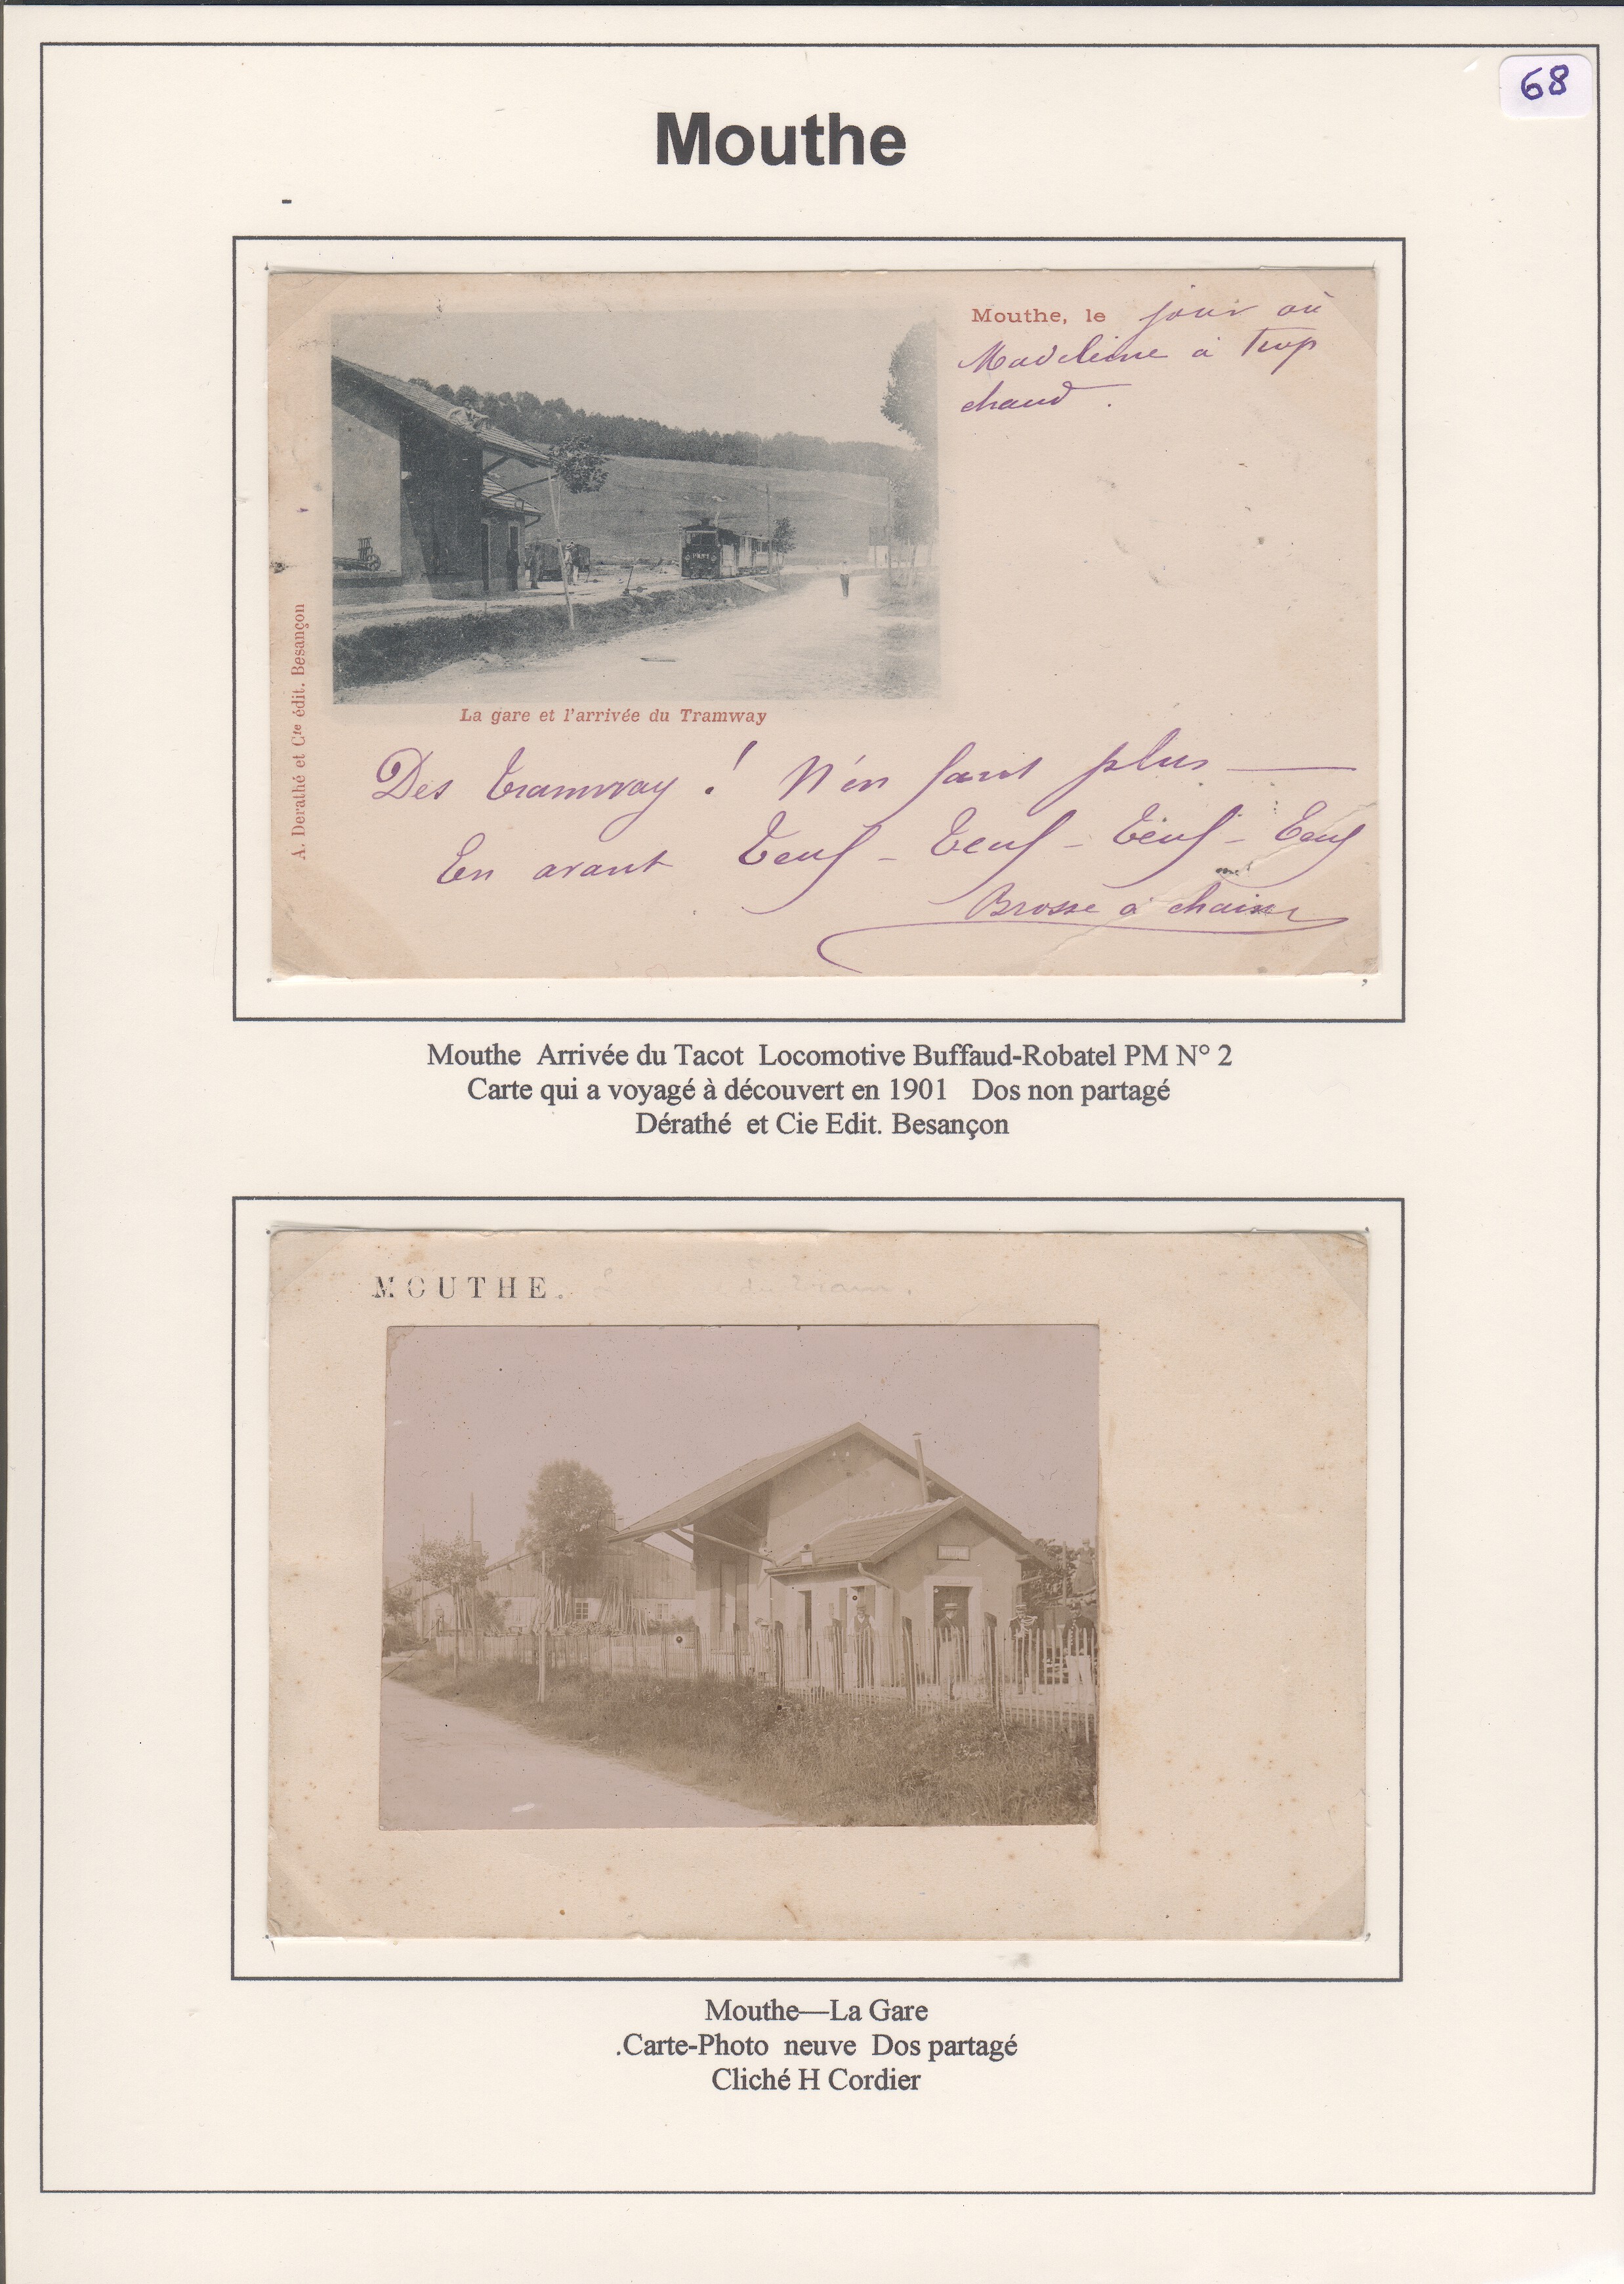 68
Mouthe
-
Mouthe, le jour où
Madeleine a trop
chaud.
A. Derathé et Cie édit. Besançon
La gare et l'arrivée du Tramway
Des tramway ! N'en faut plus —
En avant Teuf - Teuf - Teuf - Teuf
Brosse à chaises
Mouthe Arrivée du Tacot Locomotive Buffaud-Robatel PM N° 2
Carte qui a voyagé à découvert en 1901 Dos non partagé
Dérathé et Cie Edit. Besançon
MOUTHE. du Tram.
Mouthe—La Gare
.Carte-Photo neuve Dos partagé
Cliché H Cordier